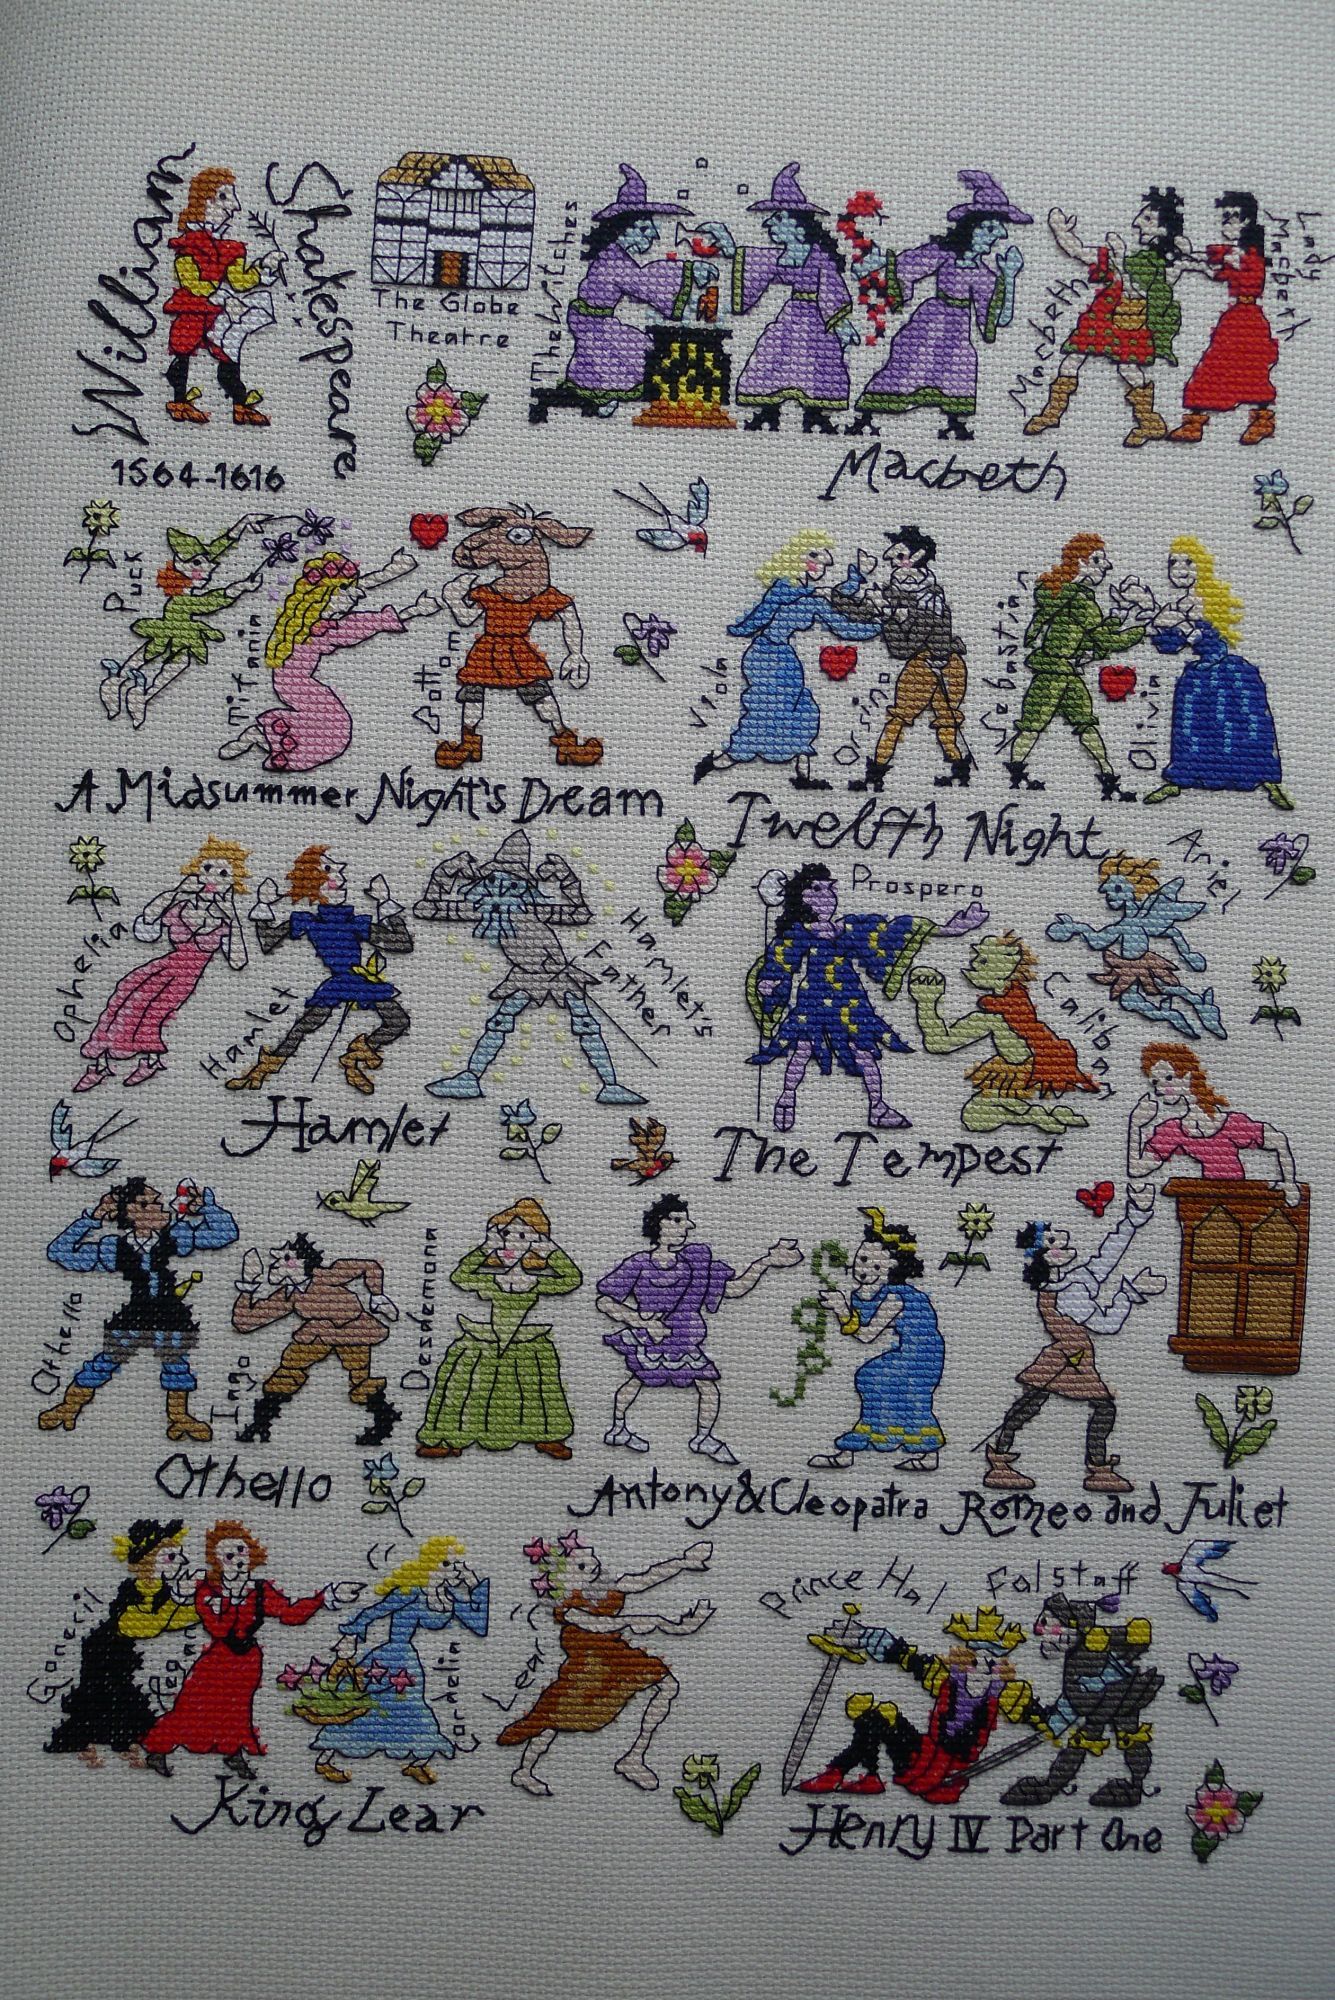 William
Shakespeare
1564-1616
The Globe
Theatre
The Witches
Macbeth
Lady
Macbeth
Macbeth
Puck
Titania
Bottom
A Midsummer Night's Dream
Viola
Orsino
Sebastian
Olivia
Twelfth Night
Ophelia
Hamlet
Hamlet's
Father
Hamlet
Prospero
Caliban
Ariel
The Tempest
Othello
Iago
Desdemona
Othello
Antony & Cleopatra
Romeo and Juliet
Goneril
Regan
Cordelia
Lear
King Lear
Prince Hal
Falstaff
Henry IV Part One